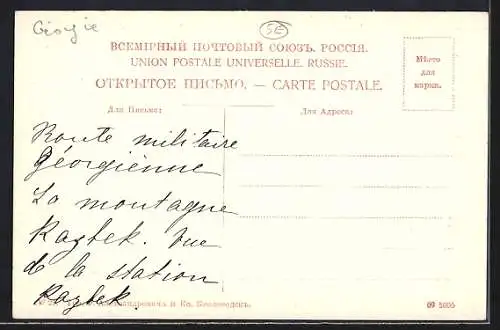 Géorgie
SE
ВСЕМІРНЫЙ ПОЧТОВЫЙ СОЮЗЪ. РОССІЯ.
UNION POSTALE UNIVERSELLE. RUSSIE.
ОТКРЫТОЕ ПИСЬМО. — CARTE POSTALE.
Мѣсто
для
марки.
Для Письма:
Для Адреса:
Route militaire
Géorgienne
La montagne
Kazbek. Vue
de la station
Kazbek.
и Ко.
09 5005